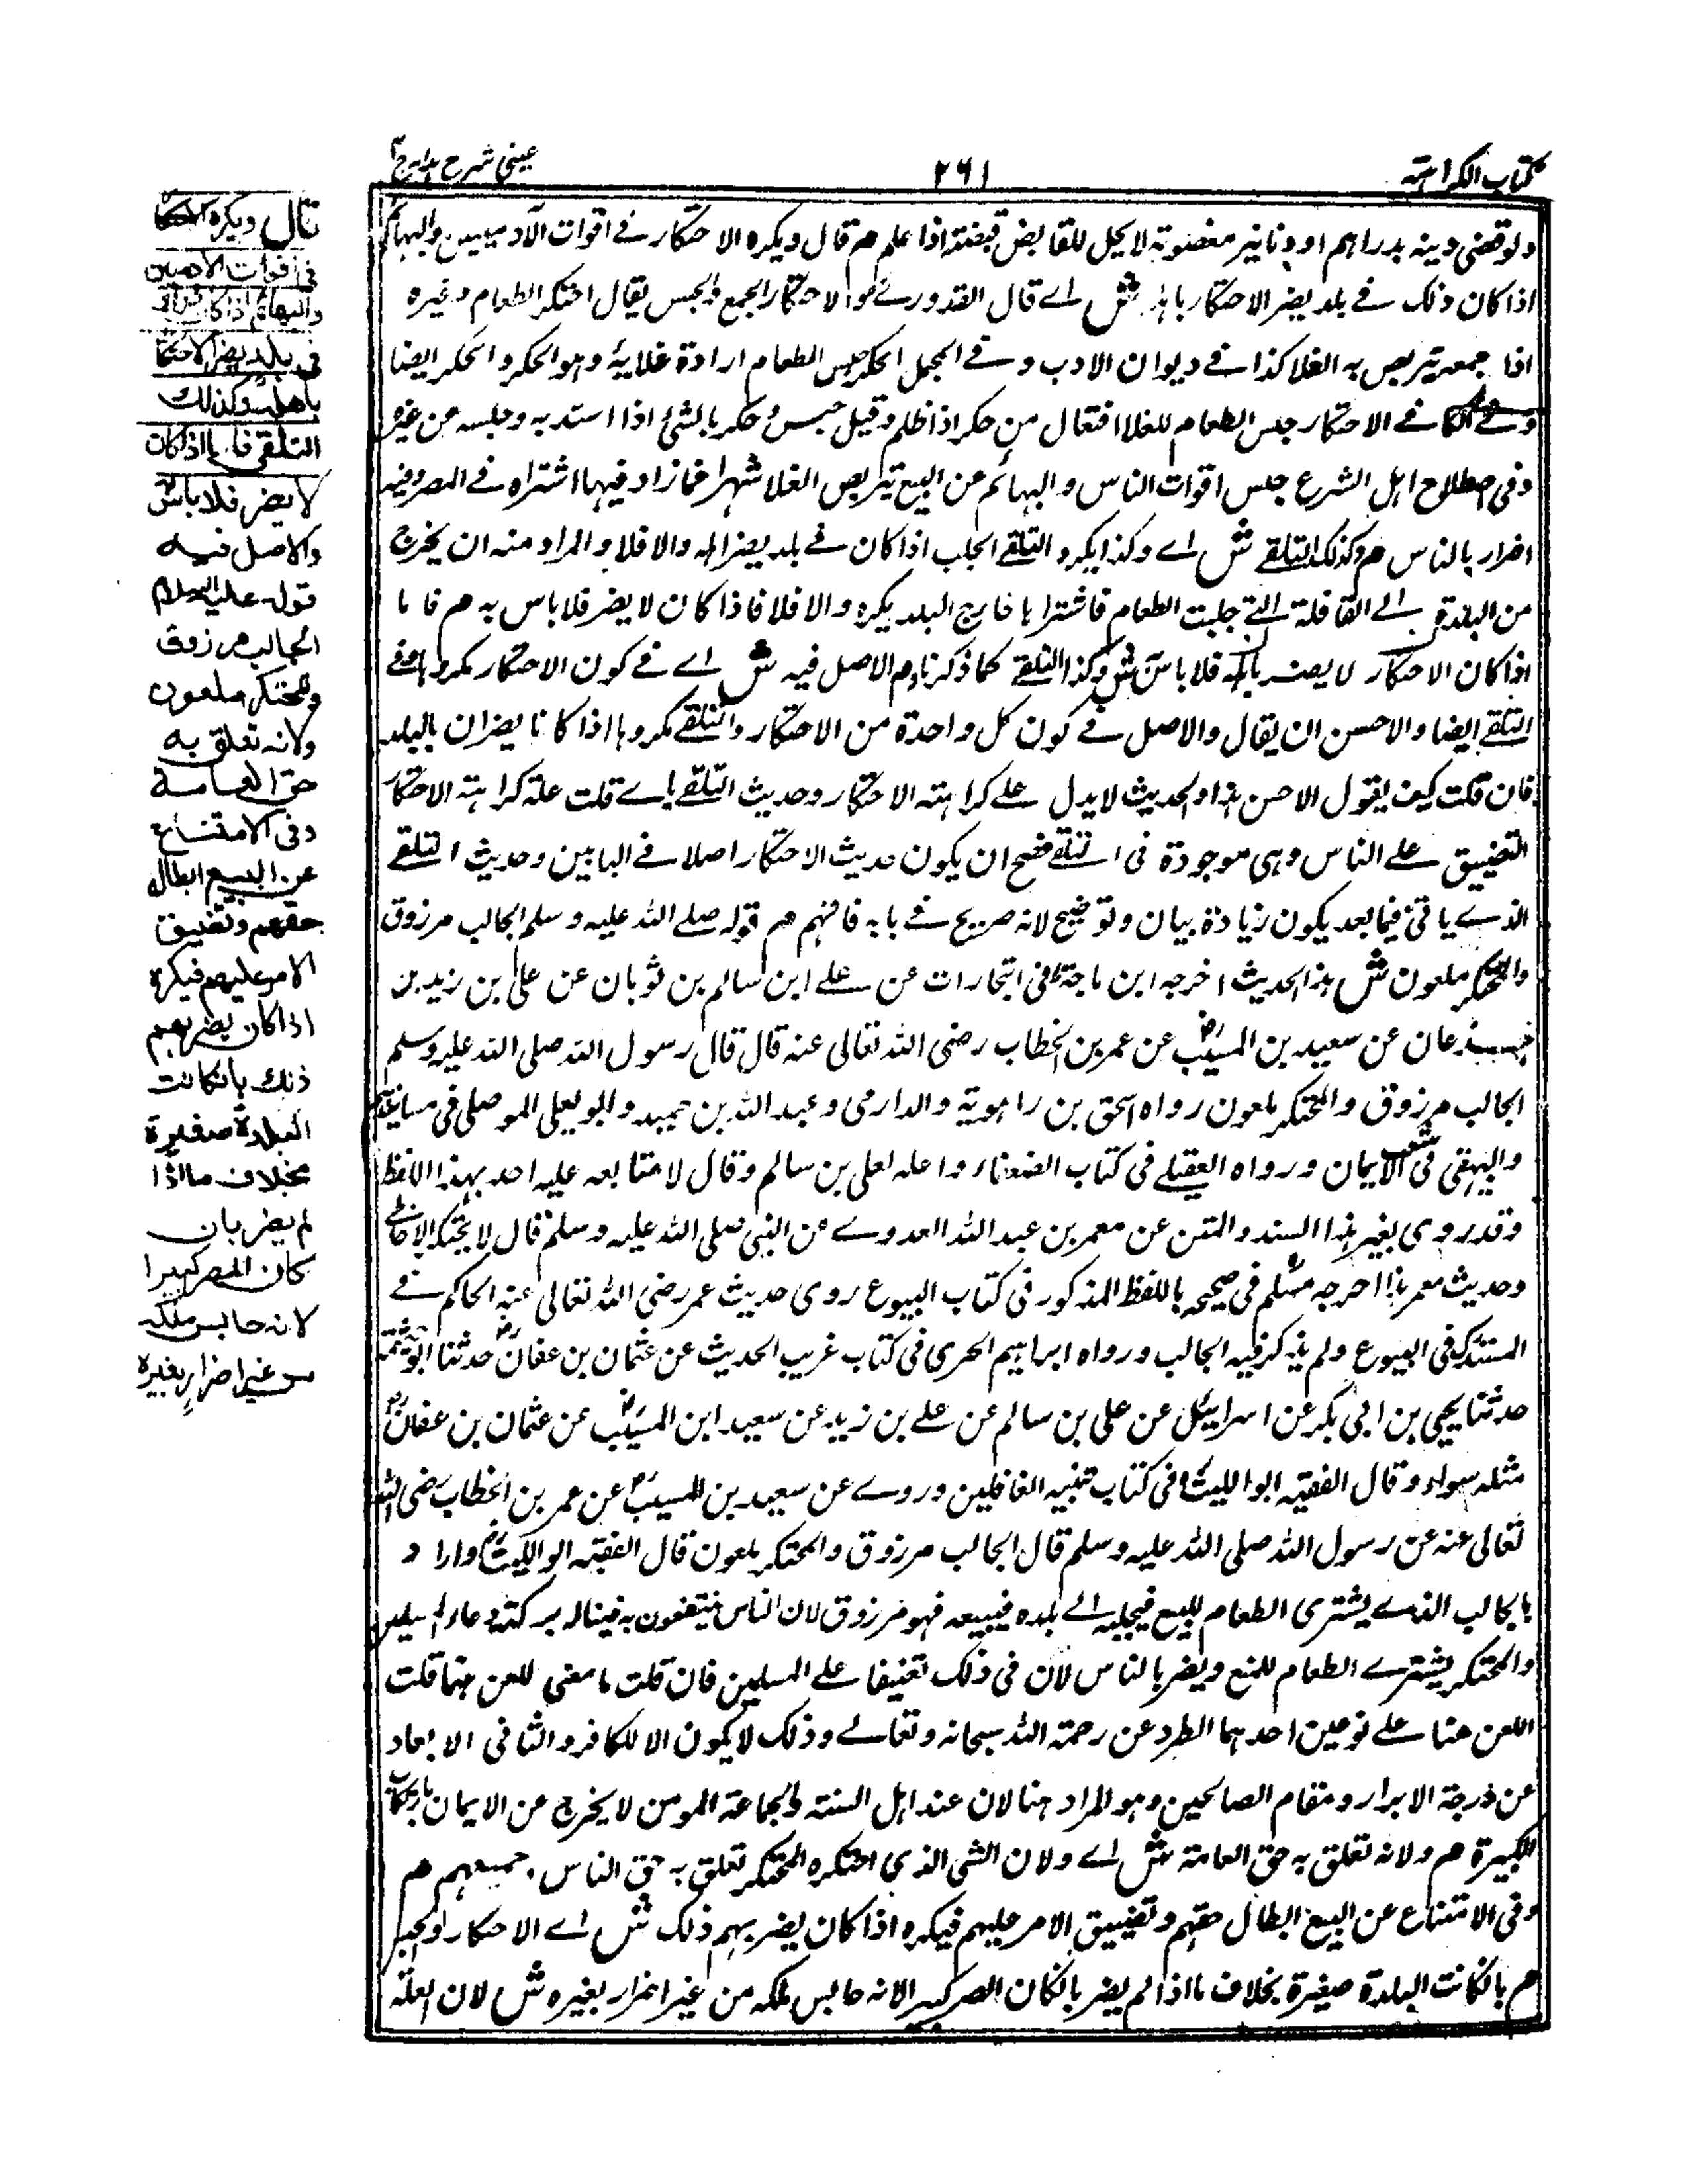 كتاب الكراهية
٢٦١
عينى شرح هداية
ولو قضى دينه بدراهم او دنانير مغصوبة لا يحل للقابض قبضته اذا علم م قال ويكره الاحتكار فے اقوات الآدميين والبهائم
اذا كان ذلك فے بلد يضر الاحتكار باهله ش اے قال القدورے والاحتكار الجمع والحبس يقال احتكر الطعام وغيره
اذا جمعه يتربص به الغلا كذا فے ديوان الادب وفے المجمل الحكر حبس الطعام ارادة غلايۂ وهو الحكر والحكر ايضا
الاحتكار حبس الطعام للغلا افتعال من حكر اذا ظلم وقيل حبس حكر بالشئ اذا استد به وحبسه عن غيره
وفى اصطلاح اهل الشرع حبس اقوات الناس والبهائم عن البيع يتربص الغلا شهرا فما زاد فيها اشتراه فے المصر وفيه
اضرار بالناس م وكذلك التلقے ش اے وكذا يكره التلقے الجلب اذا كان فے بلد يضر اهله والا فلا والمراد منه ان يخرج
من البلدة الے القافلة التے جلبت الطعام فاشتراها خارج البلد يكره والا فلا فاذا كان لا يضر فلا باس به م فاما
اذا كان الاحتكار لا يضر باهله فلا باس ش وكذا التلقے كما ذكرناه م الاصل فيه ش اے فے كون الاحتكار مكروها وفے
التلقے ايضا والاحسن ان يقال والاصل فے كون كل واحدة من الاحتكار والتلقے مكروها اذا كانا يضران بالبلد
فان قلت كيف يقول الاحسن هذا والحديث لا يدل علے كراهته الاحتكار وحديث التلقے ياتے قلت علة كراهته الاحتكار
التضييق علے الناس وهى موجودة فى التلقے فصح ان يكون حديث الاحتكار اصلا فے البابين وحديث التلقے
الذے ياتى فيما بعد يكون زيادة بيان وتوضيح لانه صريح فے بابه فافهم م قوله صلے الله عليه وسلم الجالب مرزوق
والمحتكر ملعون ش هذا الحديث اخرجه ابن ماجة فى التجارات عن علے ابن سالم بن ثوبان عن على بن زيد بن
جدعان عن سعيد بن المسيب عن عمر بن الخطاب رضى الله تعالى عنه قال قال رسول الله صلى الله عليه وسلم
الجالب مرزوق والمحتكر ملعون رواه اسحق بن راهوية والدارمى وعبد الله بن حميد وابو يعلى الموصلى فى مسانيدهم
والبيهقى فى شعب الايمان ورواه العقيلے فى كتاب الضعفاء واعله لعلى بن سالم وقال لا يتابعه عليه احد بهذا اللفظ
وقد روى بغير هذا السند والمتن عن معمر بن عبد الله العدوے عن النبى صلى الله عليه وسلم قال لا يحتكر الا خاطے
وحديث معمر هذا اخرجه مسلم فى صحيحه باللفظ المذكور فى كتاب البيوع روى حديث عمر رضى الله تعالى عنه الحاكم فے
المستدرك فى البيوع ولم يذكر فيه الجالب ورواه ابراهيم الحربى فى كتاب غريب الحديث عن عثمان بن عفان حدثنا ابو خيثمة
حدثنا يحيى بن ابى بكر عن اسرائيل عن على بن سالم عن علے بن زيد عن سعيد ابن المسيب عن عثمان بن عفان
مثله سواء وقال الفقيه ابو الليث فى كتاب تنبيه الغافلين وروے عن سعيد بن المسيب عن عمر بن الخطاب رضى الله
تعالى عنه عن رسول الله صلى الله عليه وسلم قال الجالب مرزوق والمحتكر ملعون قال الفقيه ابو الليث واراد
بالجالب الذے يشترى الطعام للبيع فيجلبه الے بلده فيبيعه فهو مرزوق لان الناس ينتفعون به فيناله بركة دعاء المسلمين
والمحتكر يشترے الطعام للمنع ويضر بالناس لان فى ذلك تعنيفا علے المسلمين فان قلت ما معنى للعن هنا قلت
اللعن هنا علے نوعين احدهما الطرد عن رحمة الله سبحانه وتعالے وذلك لا يكون الا للكافر والثانى الابعاد
عن درجة الابرار ومقام الصالحين وهو المراد هنا لان عند اهل السنته والجماعة المومن لا يخرج عن الايمان بارتكاب
الكبيرة م ولانه تعلق به حق العامة ش اے ولان الشى الذى احتكره المحتكر تعلق به حق الناس جميعهم م
وفى الامتناع عن البيع ابطال حقهم وتضييق الامر عليهم فيكره اذا كان يضر بهم ذلك ش اے الاحتكار والجبر
م بان كانت البلدة صغيرة بخلاف ما اذا لم يضر بان كان المصر كبيرا لانه حابس ملكه من غير اضرار بغيره ش لان العلة
قال ويكره الاحتكار
فى اقوات الآدميين
والبهائم اذا كان ذلك
فى بلد يضر الاحتكار
باهله وكذلك
التلقى فاما اذا كان
لا يضر فلا باس
والاصل فيه
قوله عليه السلام
الجالب مرزوق
والمحتكر ملعون
ولانه تعلق به
حق العامة
وفى الامتناع
عن البيع ابطال
حقهم وتضييق
الامر عليهم فيكره
اذا كان يضر بهم
ذلك بان كانت
البلدة صغيرة
بخلاف ما اذا
لم يضر بان
كان المصر كبيرا
لانه حابس ملكه
من غير اضرار بغيره